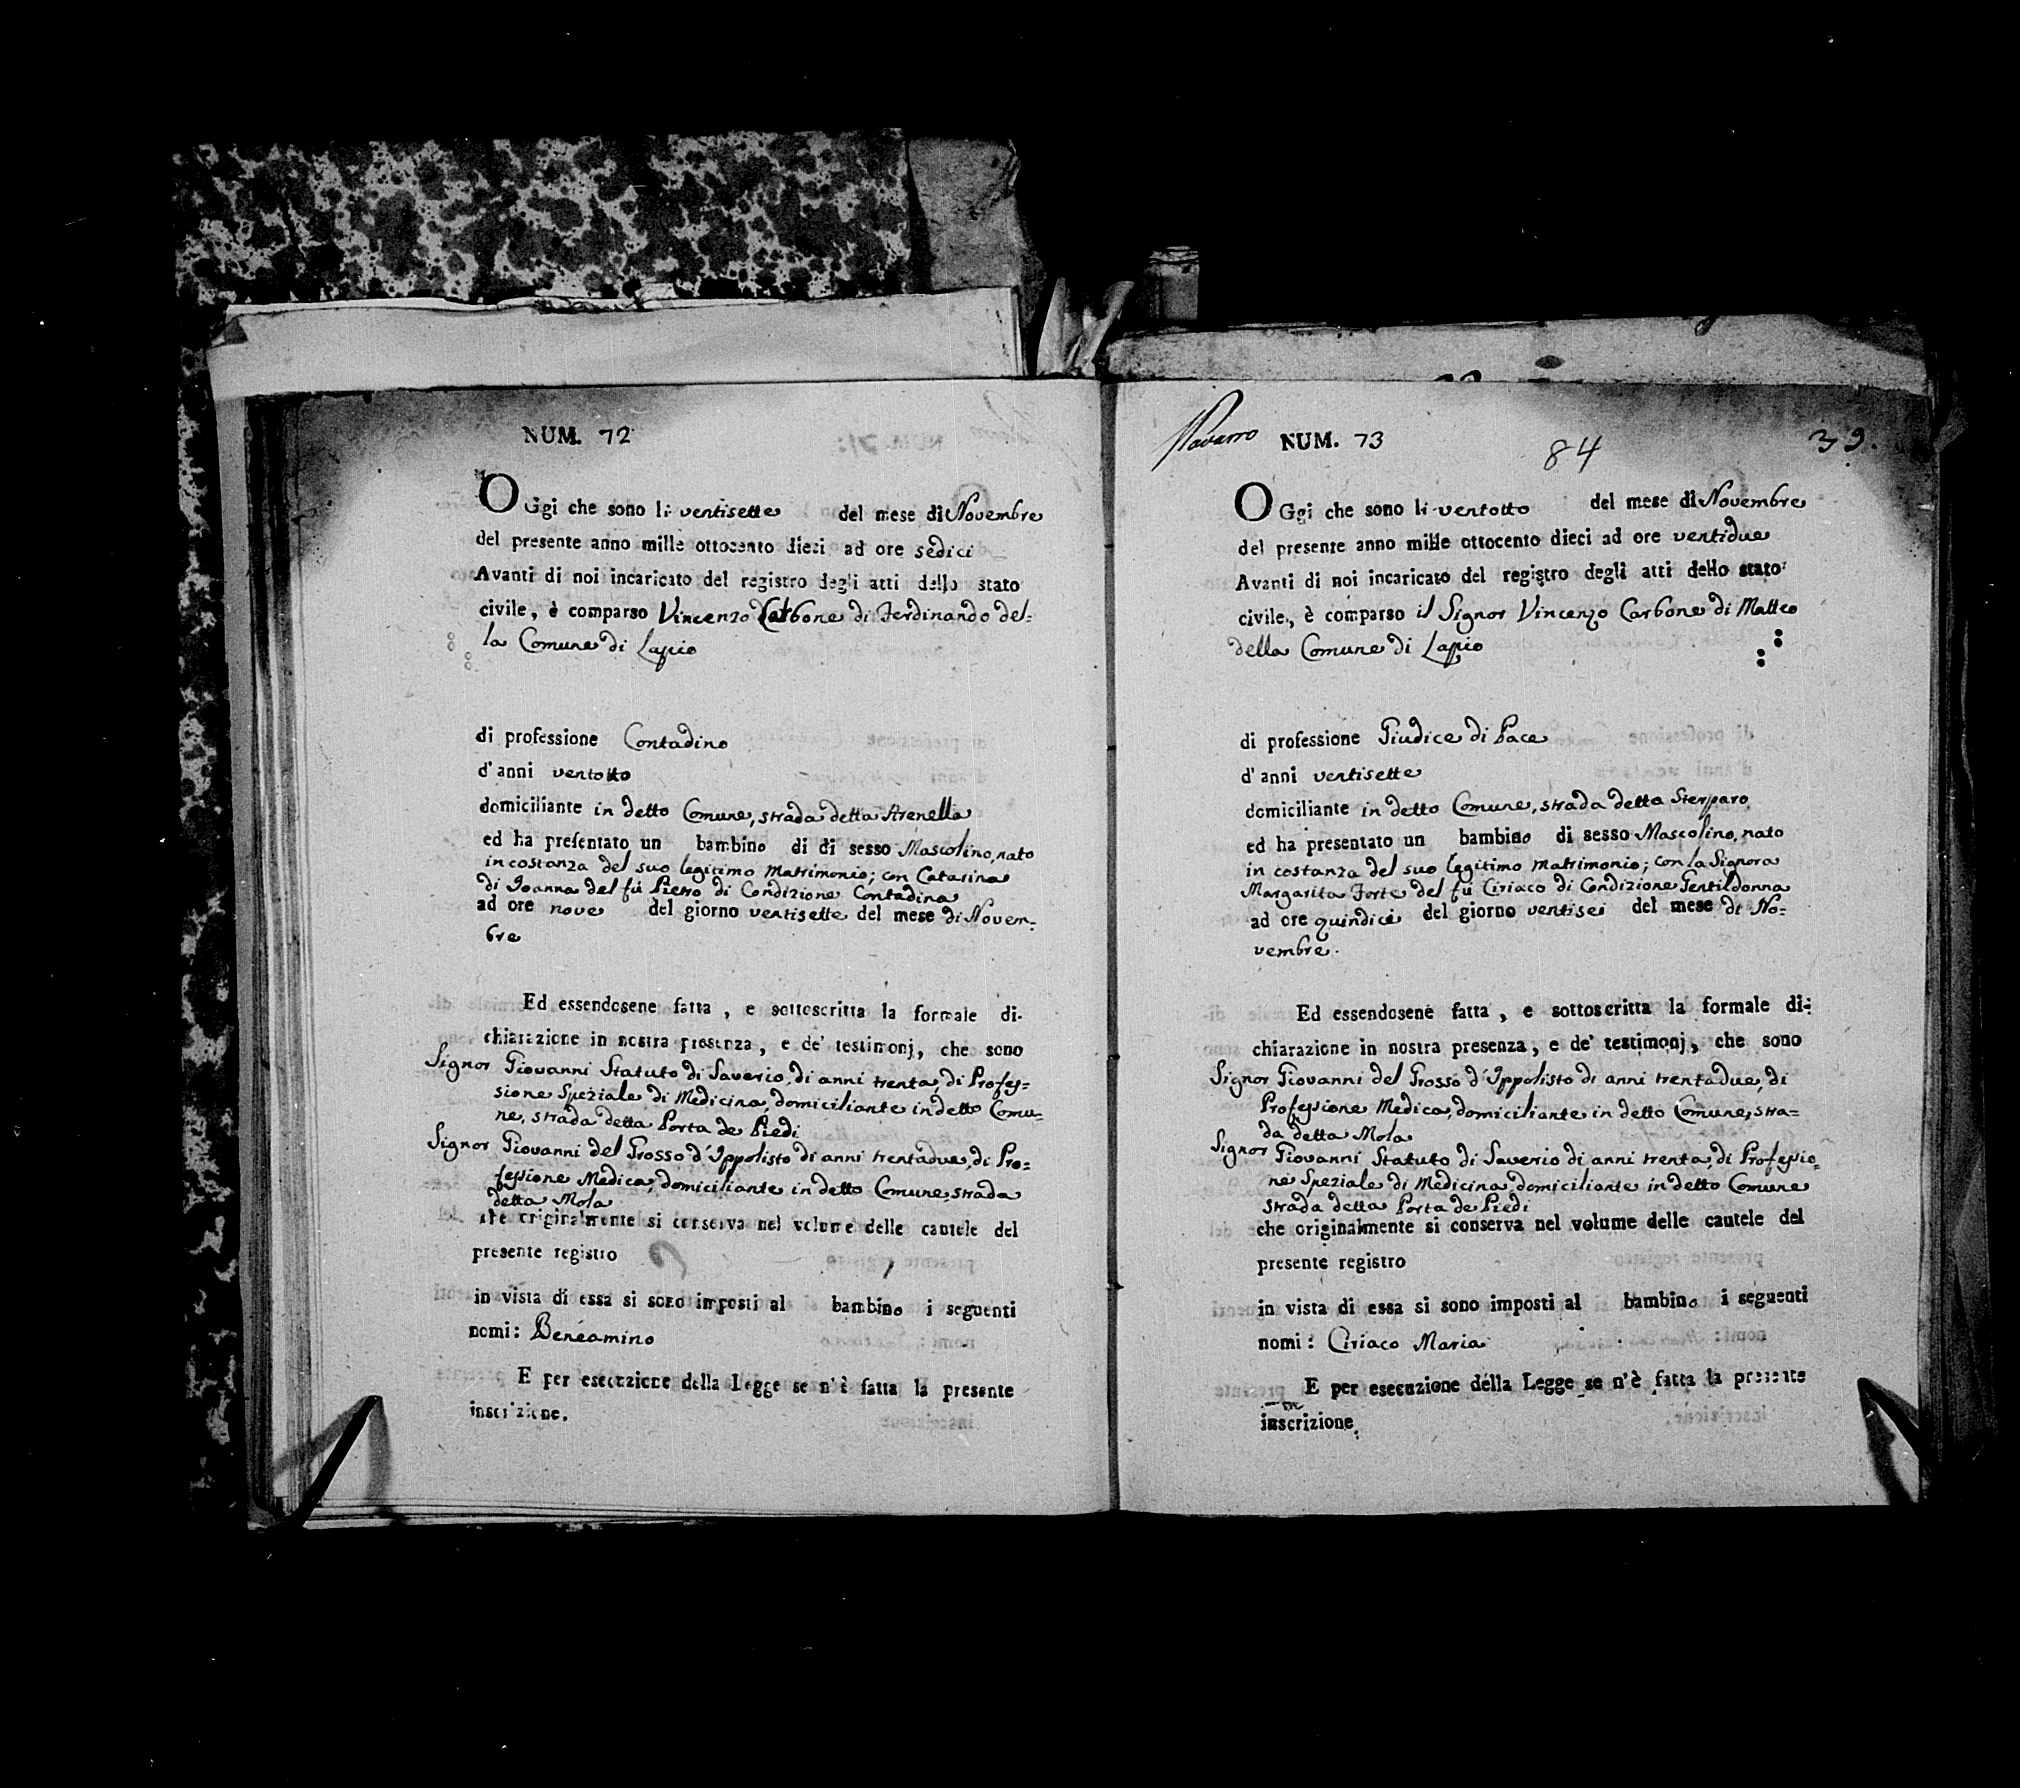 NUM. 72
OGgi che sono li ventisette del mese di Novembre
del presente anno mille ottocento dieci ad ore sedici
Avanti di noi incaricato del registro degli atti dello stato
civile, è comparso Vincenzo Carbone di Ferdinando del=
la Comune di Lapio
di professione Contadino
d'anni ventotto
domiciliante in detto Comune, strada detta Arenella
ed ha presentato un bambino di di sesso Mascolino, nato
in costanza del suo legitimo Matrimonio; con Catarina
di Joanna del fù Pietro di Condizione Contadina
ad ore nove del giorno ventisette del mese di Novem=
bre
Ed essendosene fatta, e sottoscritta la formale di-
chiarazione in nostra presenza, e de' testimonj, che sono
Signor Giovanni Statuto di Saverio, di anni trenta, di Profes=
sione Speziale di Medicina, domiciliante in detto Comu=
ne, strada detta Porta de Piedi
Signor Giovanni del Grosso d'Ippolisto di anni trentadue, di Pro=
fessione Medica, domiciliante in detto Comune, strada
detta Mola
che originalmente si conserva nel volume delle cautele del
presente registro
in vista di essa si sono imposti al bambino i seguenti
nomi: Beneamino
E per esecuzione della Legge se n'è fatta la presente
inscrizione.
Navarro NUM. 73 84 39.
OGgi che sono li ventotto del mese di Novembre
del presente anno mille ottocento dieci ad ore ventidue
Avanti di noi incaricato del registro degli atti dello stato
civile, è comparso il Signor Vincenzo Carbone di Matteo
della Comune di Lapio
di professione Giudice di Pace
d'anni ventisette
domiciliante in detto Comune, strada detta Sterparo
ed ha presentato un bambino di sesso Mascolino, nato
in costanza del suo legitimo matrimonio; con la Signora
Margarita Forte del fù Ciriaco di Condizione Gentildonna
ad ore quindici del giorno ventisei del mese di No=
vembre.
Ed essendosene fatta, e sottoscritta la formale di-
chiarazione in nostra presenza, e de' testimonj, che sono
Signor Giovanni del Grosso d'Ippolisto di anni trentadue, di
Professione Medica, domiciliante in detto Comune, stra=
da detta Mola
Signor Giovanni Statuto di Saverio di anni trenta, di Professio=
ne Speziale di Medicina domiciliante in detto Comune
strada detta Porta de Piedi
che originalmente si conserva nel volume delle cautele del
presente registro
in vista di essa si sono imposti al bambino i seguenti
nomi: Ciriaco Maria
E per esecuzione della Legge se n'è fatta la presente
inscrizione